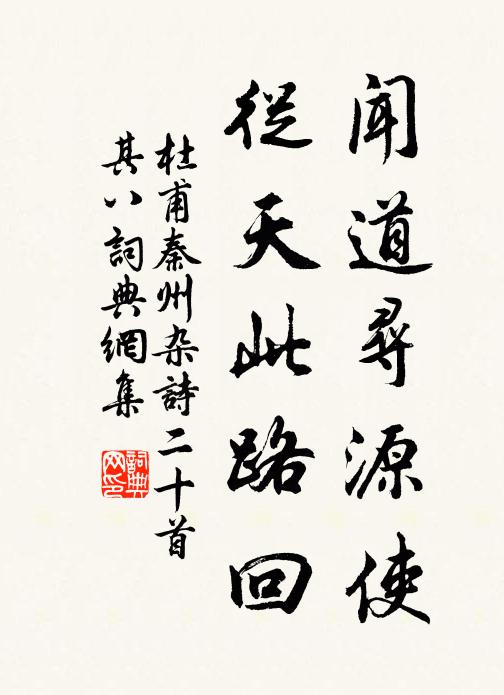 聞道尋源使
從天此路回
杜甫秦州杂詩二十首
其八詞典網集
詞典网印